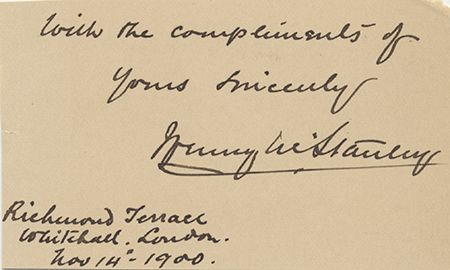 With the compliments of
Yours Sincerely
Henry M Stanley
Richmond Terrace
Whitehall. London.
Nov 14th 1900.